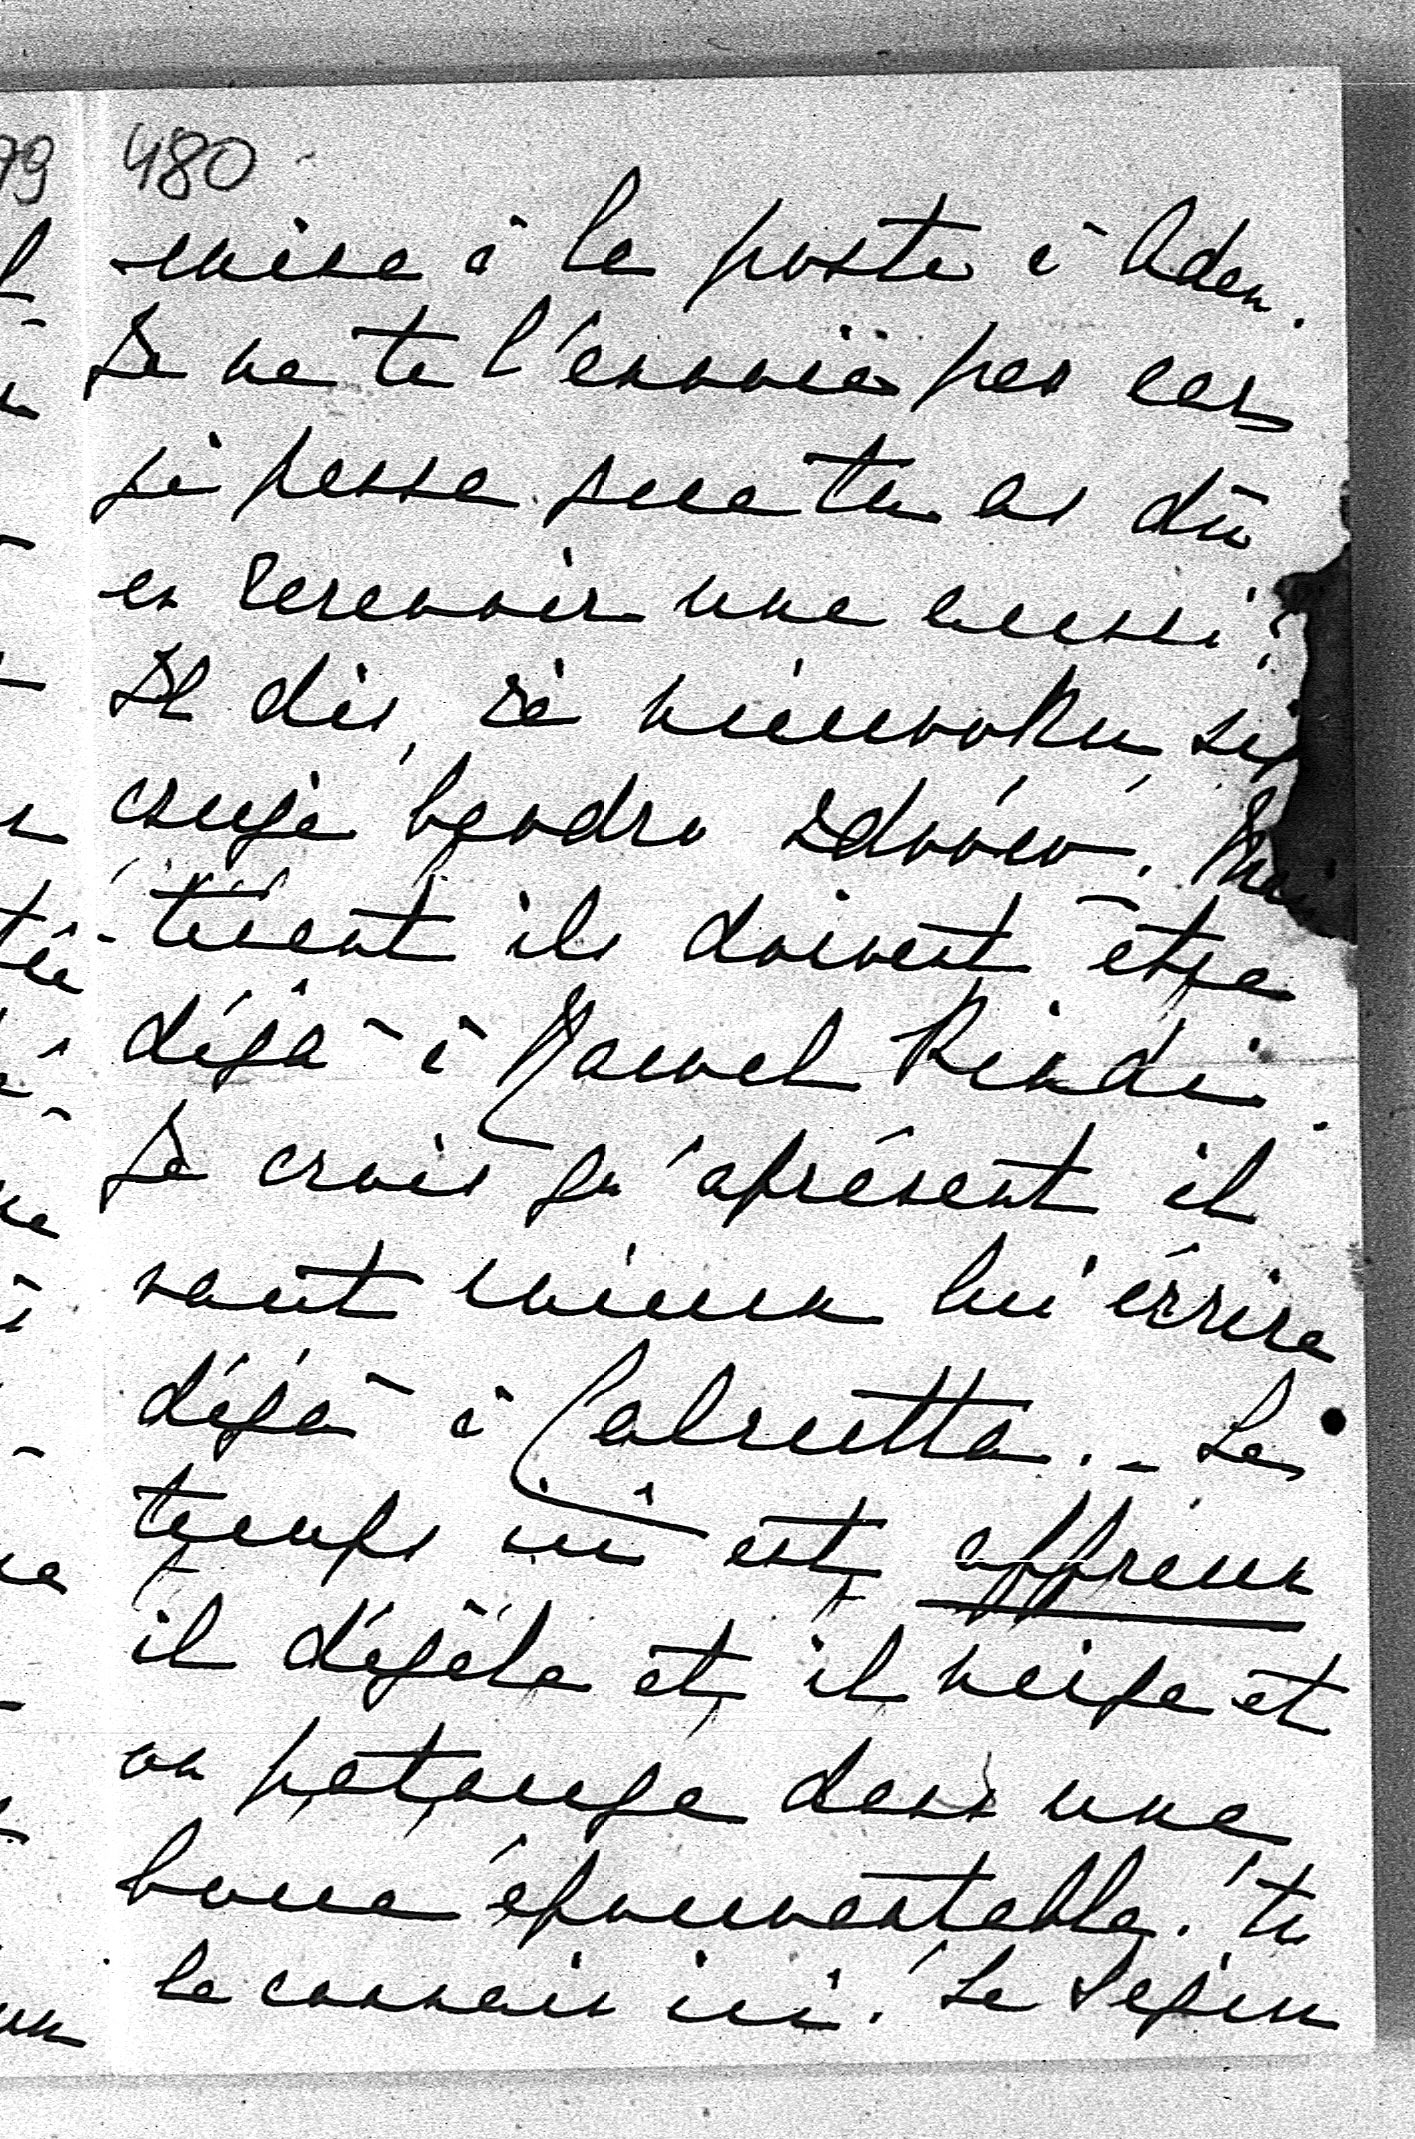 480
mise à la poste à Aden.
Je ne te l'envoie pas car
je pense que tu as dû
en recevoir une aussi?
Il dit, że niezwykle się
czuje bardzo zdrów. Main
-tenant ils doivent être
déjà à Rawal Pindi.
Je crois qu'àprésent il
vaut mieux lui écrire
déjà à Calcutta. - Le
temps ici est affreux
il dégèle et il neige et
on patauge dans une
boue épouvantable. tu
la connais ici! Le Sejm